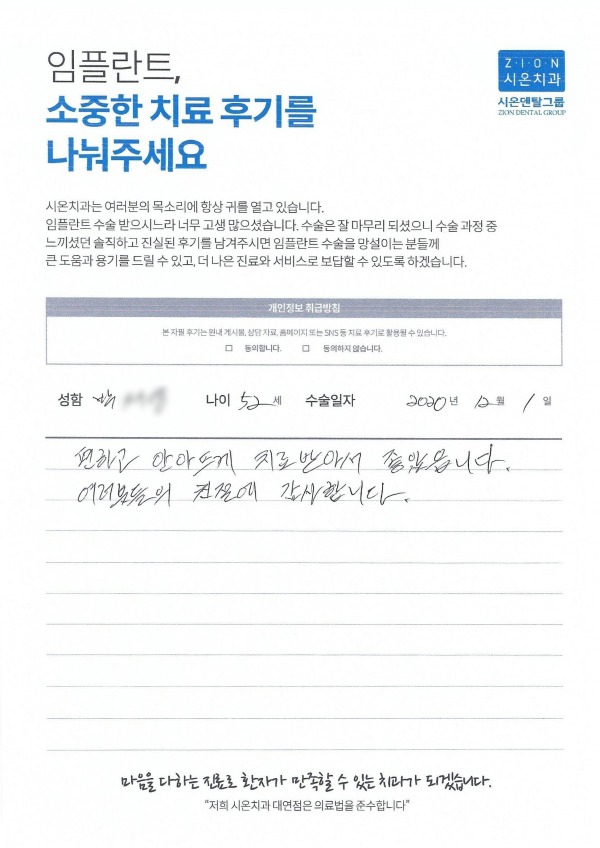 임플란트,
소중한 치료 후기를
나눠주세요
Z·I·O·N
시온치과
시온덴탈그룹
ZION DENTAL GROUP
시온치과는 여러분의 목소리에 항상 귀를 열고 있습니다.
임플란트 수술 받으시느라 너무 고생 많으셨습니다. 수술은 잘 마무리 되셨으니 수술 과정 중
느끼셨던 솔직하고 진실된 후기를 남겨주시면 임플란트 수술을 망설이는 분들께
큰 도움과 용기를 드릴 수 있고, 더 나은 진료와 서비스로 보답할 수 있도록 하겠습니다.
개인정보 취급방침
본 자필 후기는 원내 게시물, 상담 자료, 홈페이지 또는 SNS 등 치료 후기로 활용될 수 있습니다.
☐ 동의합니다. ☐ 동의하지 않습니다.
성함 박 나이 52 세 수술일자 2020 년 12 월 1 일
편하고 안아프게 치료받아서 좋았읍니다.
여러분들의 친절에 감사합니다.
마음을 다하는 진료로 환자가 만족할 수 있는 치과가 되겠습니다.
“저희 시온치과 대연점은 의료법을 준수합니다”